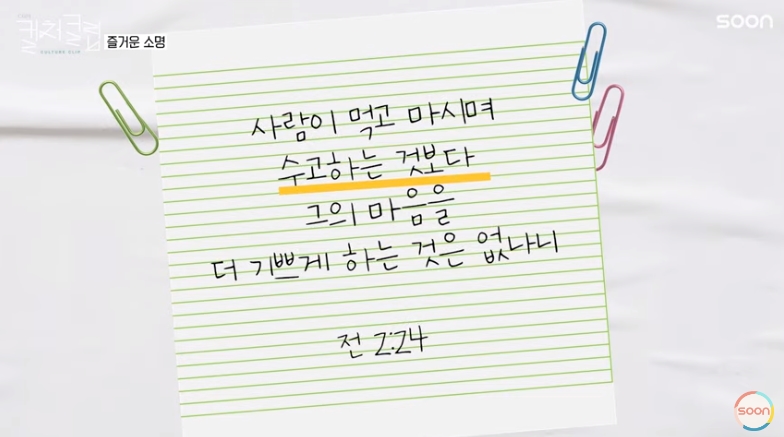 컬처클립
CULTURE CLIP
즐거운 소명
soon
사람이 먹고 마시며
수고하는 것보다
그의 마음을
더 기쁘게 하는 것은 없나니
전 2:24
soon